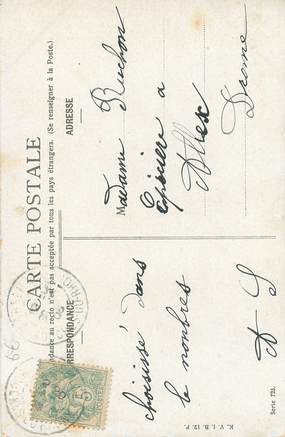 CARTE POSTALE
La Correspondance au recto n'est pas acceptée par tous les pays étrangers. (Se renseigner à la Poste.)
CORRESPONDANCE
ADRESSE
choisisé dans
le nombres
A S
Madame Ruchon
Epiciere a
Allex
Drome
K. V. i. B. 12. P.
Serie 735.